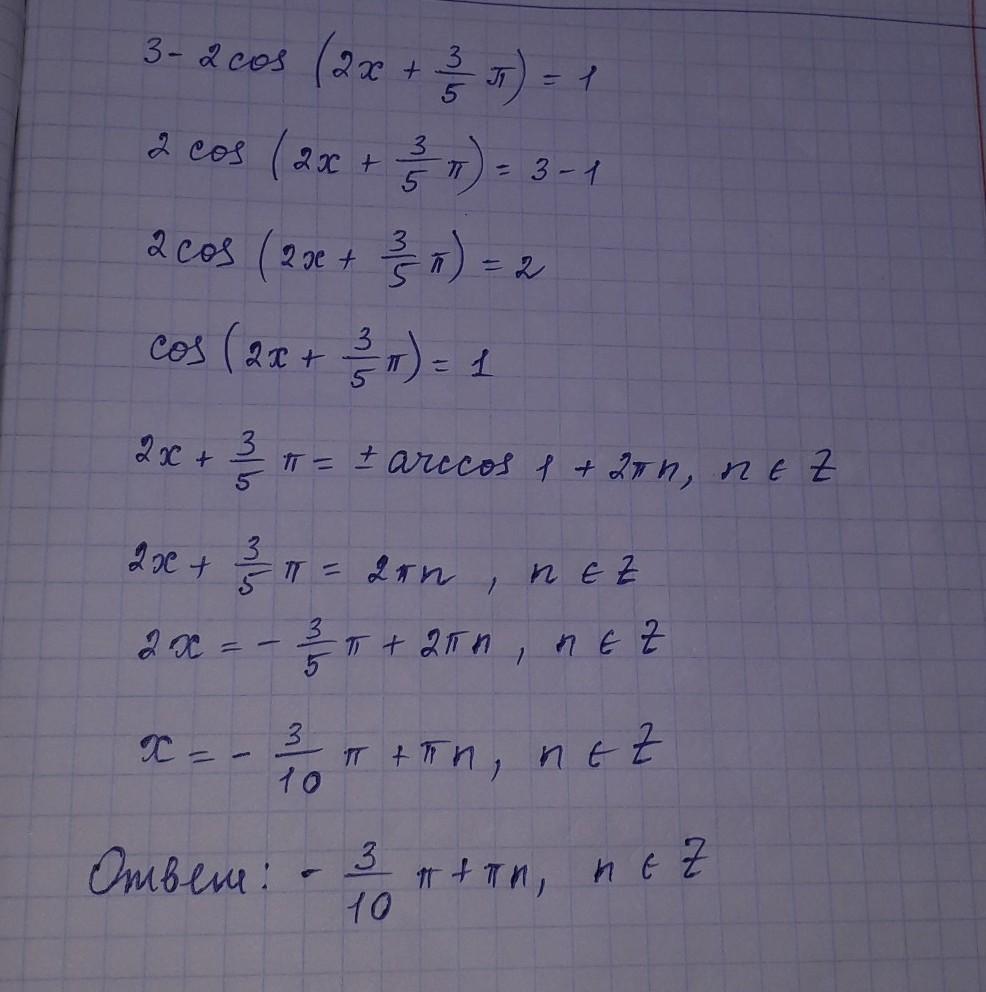 3 - 2 cos (2x + 3/5 π) = 1
2 cos (2x + 3/5 π) = 3 - 1
2 cos (2x + 3/5 π) = 2
cos (2x + 3/5 π) = 1
2x + 3/5 π = ± arccos 1 + 2πn, n ∈ Z
2x + 3/5 π = 2πn , n ∈ Z
2x = - 3/5 π + 2πn , n ∈ Z
x = - 3/10 π + πn, n ∈ Z
Ответ: - 3/10 π + πn, n ∈ Z